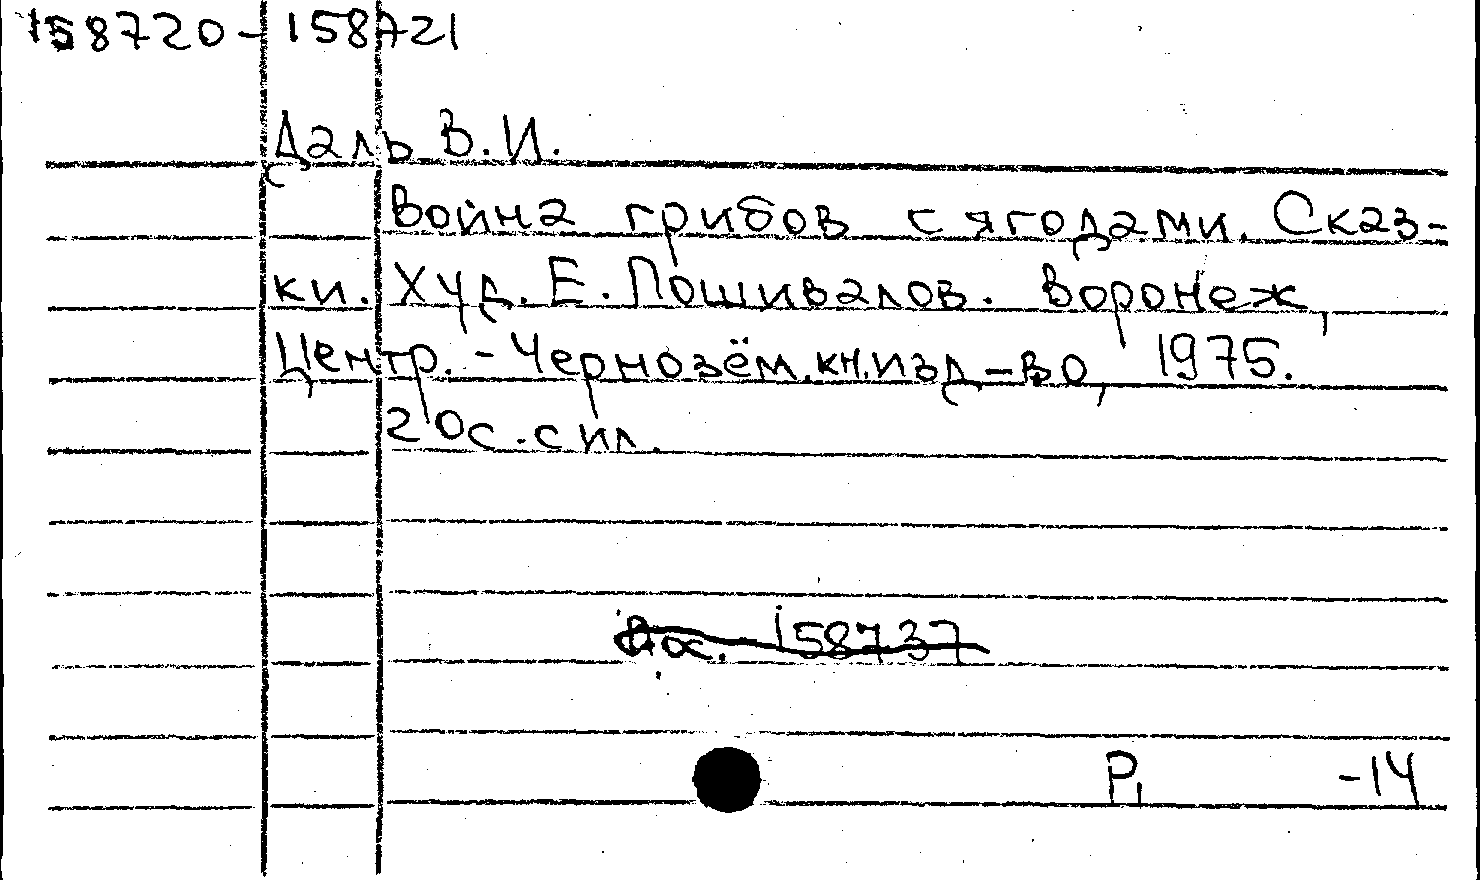 158720-158721
Даль В.И.
Война грибов с ягодами. Сказ-
ки. Худ. Е. Пошивалов. Воронеж,
Центр.-Чернозём.кн.изд-во, 1975.
20с.с ил.
158737
Р1 -14